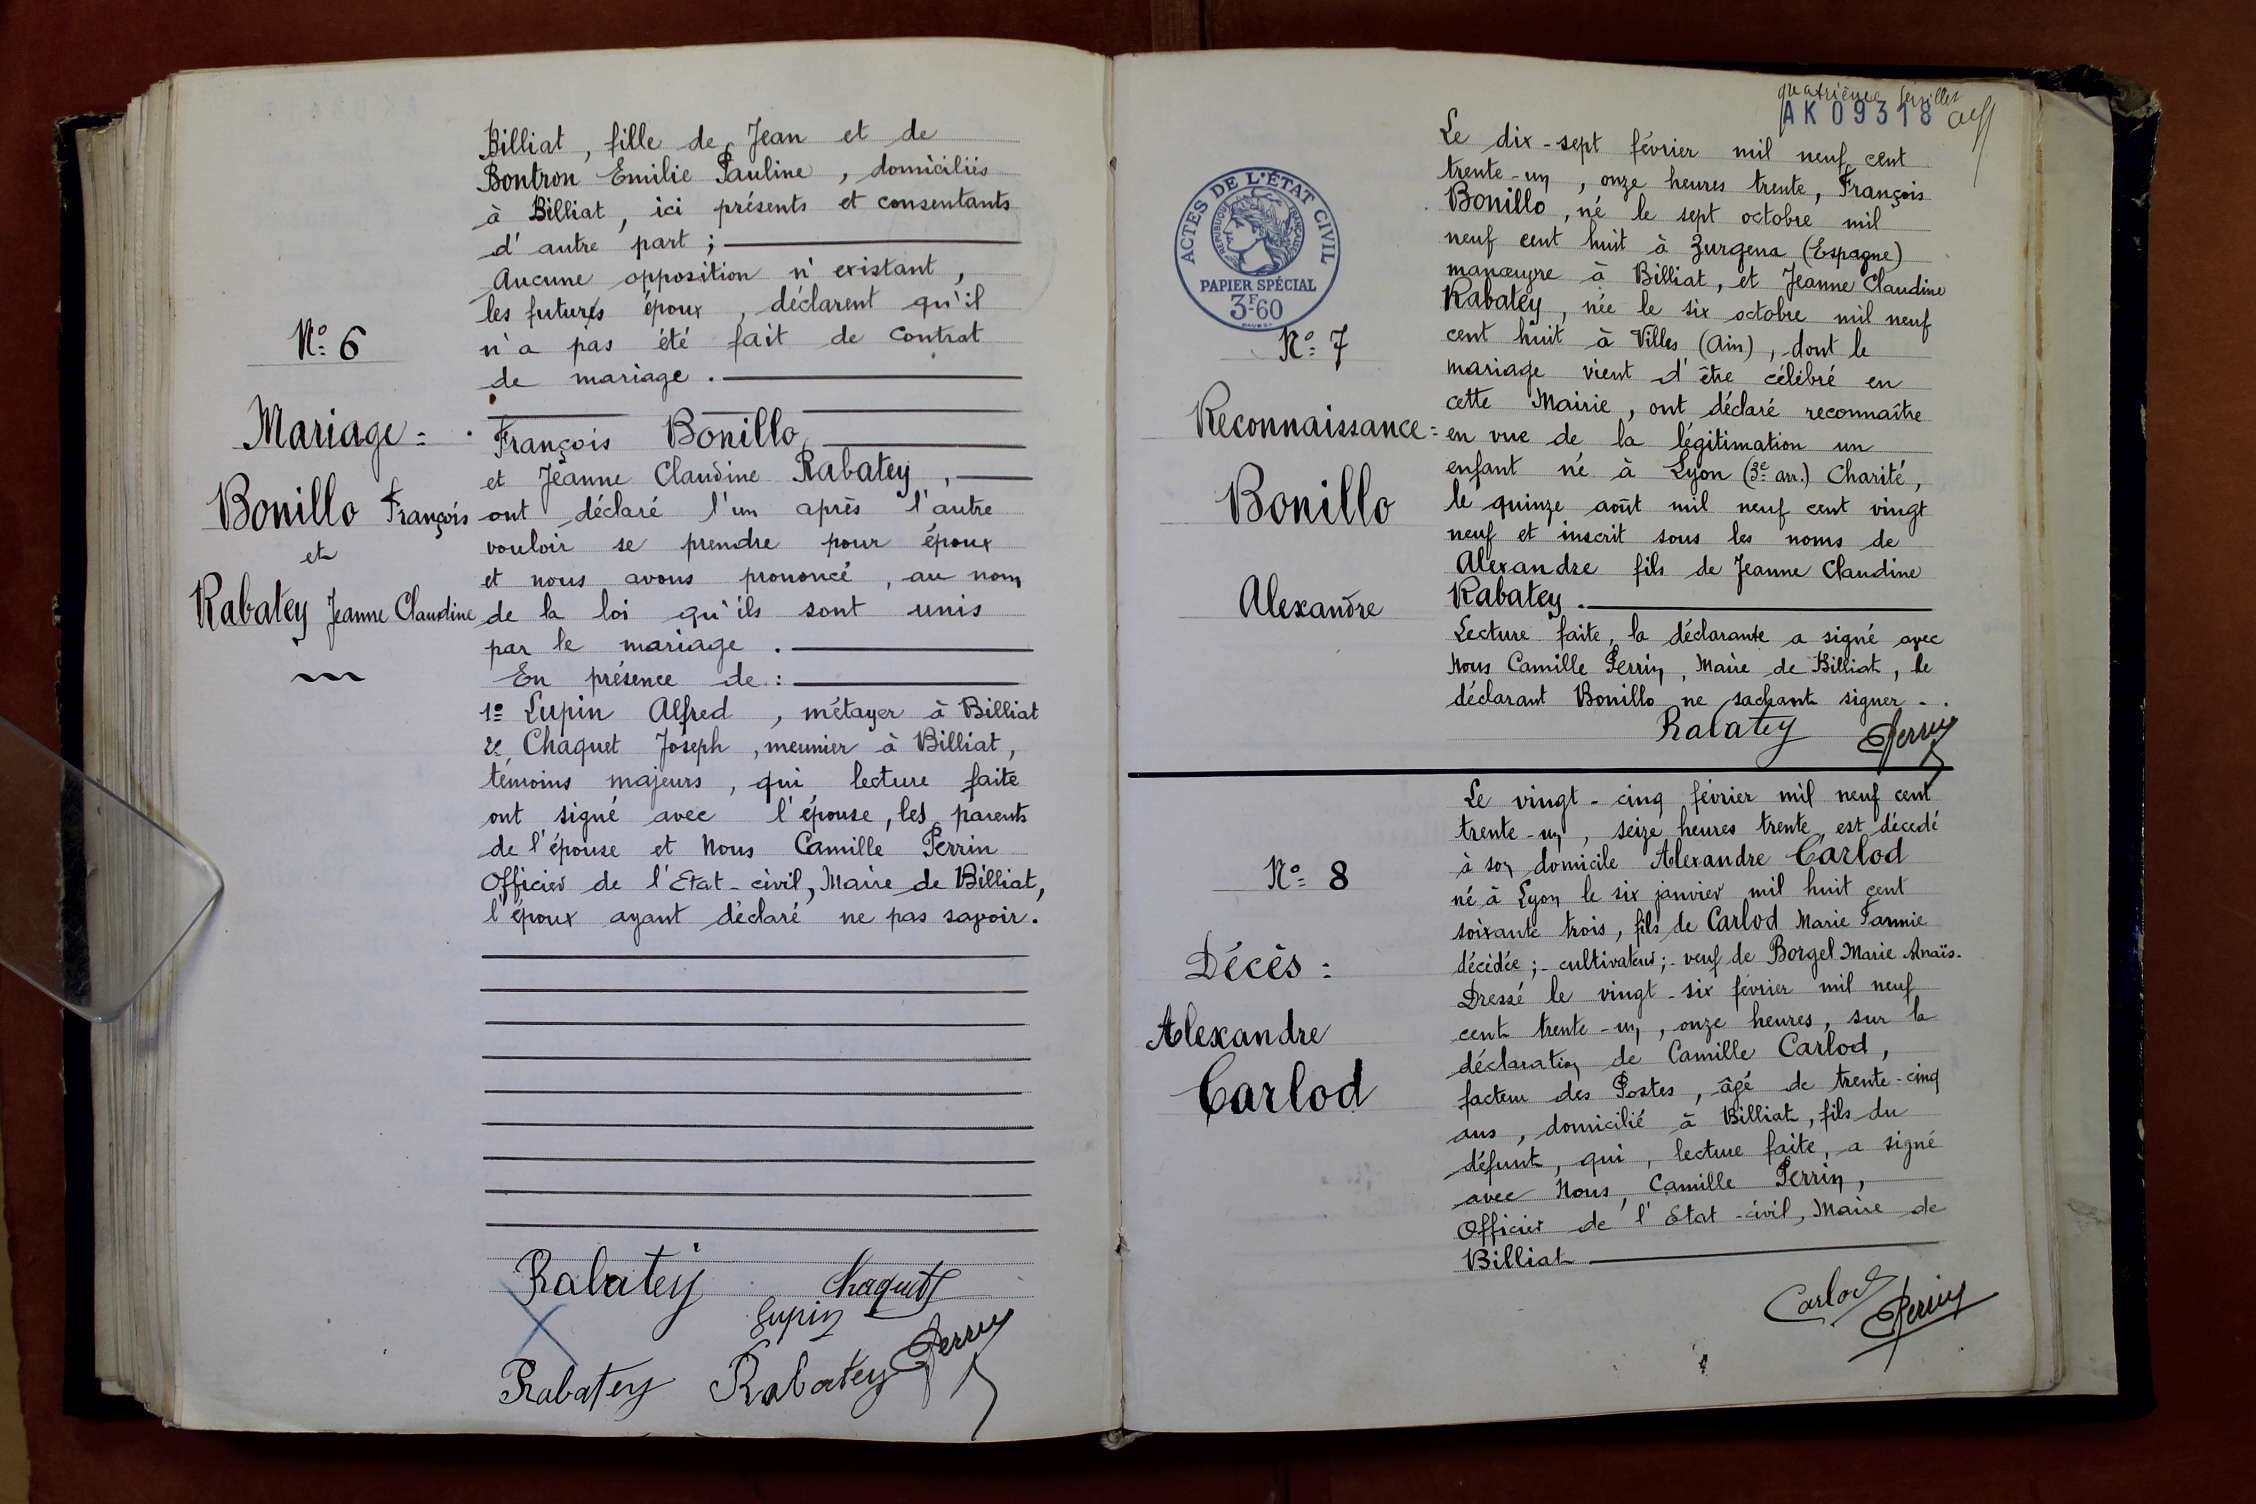 Billiat, fille de Jean et de
Bontron Emilie Pauline, domiciliés
à Billiat, ici présents et consentants
d'autre part ;
Aucune opposition n'existant,
les futurs époux, déclarent qu'il
n'a pas été fait de contrat
de mariage.
N° 6
Mariage =
Bonillo François
et
Rabatey Jeanne Claudine
François Bonillo,
et Jeanne Claudine Rabatey,
ont déclaré l'un après l'autre
vouloir se prendre pour époux
et nous avons prononcé, au nom
de la loi qu'ils sont unis
par le mariage.
En présence de :
1° Lupin Alfred, métayer à Billiat
2° Chaquet Joseph, meunier à Billiat,
témoins majeurs, qui, lecture faite
ont signé avec l'épouse, les parents
de l'épouse et Nous Camille Perrin
Officier de l'Etat-civil, Maire de Billiat,
l'époux ayant déclaré ne pas savoir.
Rabatey Chaquet
Lupin
Rabatey Rabatey Perrin
quatrième feuillet
AK 09318
ACTES DE L'ÉTAT CIVIL
RÉPUBLIQUE FRANÇAISE
PAPIER SPÉCIAL
3F60
N° 7
Reconnaissance =
Bonillo
Alexandre
Le dix-sept février mil neuf cent
trente-un, onze heures trente, François
Bonillo, né le sept octobre mil
neuf cent huit à Zurgena (Espagne)
manœuvre à Billiat, et Jeanne Claudine
Rabatey, née le six octobre mil neuf
cent huit à Villes (Ain), dont le
mariage vient d'être célébré en
cette Mairie, ont déclaré reconnaître
en vue de la légitimation un
enfant né à Lyon (2e arr.) Charité,
le quinze août mil neuf cent vingt
neuf et inscrit sous les noms de
Alexandre fils de Jeanne Claudine
Rabatey.
Lecture faite, la déclarante a signé avec
Nous Camille Perrin, Maire de Billiat, le
déclarant Bonillo ne sachant signer.
Rabatey Perrin
N° 8
Décès :
Alexandre
Carlod
Le vingt-cinq février mil neuf cent
trente-un, seize heures trente, est décédé
à son domicile Alexandre Carlod
né à Lyon le six janvier mil huit cent
soixante trois, fils de Carlod Marie Fannie
décédée ;- cultivateur ;- veuf de Borgel Marie Anaïs.
Dressé le vingt-six février mil neuf
cent trente-un, onze heures, sur la
déclaration de Camille Carlod,
facteur des Postes, âgé de trente-cinq
ans, domicilié à Billiat, fils du
défunt, qui, lecture faite, a signé
avec Nous, Camille Perrin,
Officier de l'Etat-civil, Maire de
Billiat
Carlod Perrin